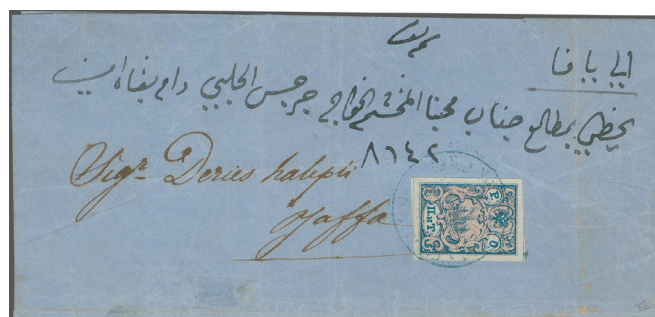 الى يافا
يحظى بمطالع جناب محبنا المحتشم الخواجه جرجس الحلبي دام بقاه امين
٨٦٤٢
Sigr Deries halepli
Jaffa